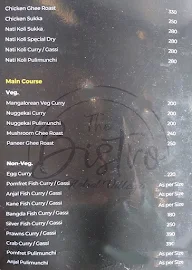 Chicken Ghee Roast 330
Chicken Sukka 250
Nati Koli Sukka 280
Nati Koli Special Dry 280
Nati Koli Curry / Gassi 280
Nati Koli Pulimunchi 280
Main Course
Veg.
Mangalorean Veg Curry 200
Nuggekai Curry 200
Nuggekai Pulimunchi 200
Mushroom Ghee Roast 240
Paneer Ghee Roast 250
The
Bistro
Non-Veg.
Egg Curry 220
Pomfret Fish Curry / Gassi As per Size
Anjal Fish Curry / Gassi As per Size
Kane Fish Curry / Gassi As per Size
Bangda Fish Curry / Gassi 250
Silver Fish Curry / Gassi 250
Prawns Curry / Gassi 390
Crab Curry / Gassi 390
Pomfret Pulimunchi As per Size
Anjal Pulimunchi As per Size